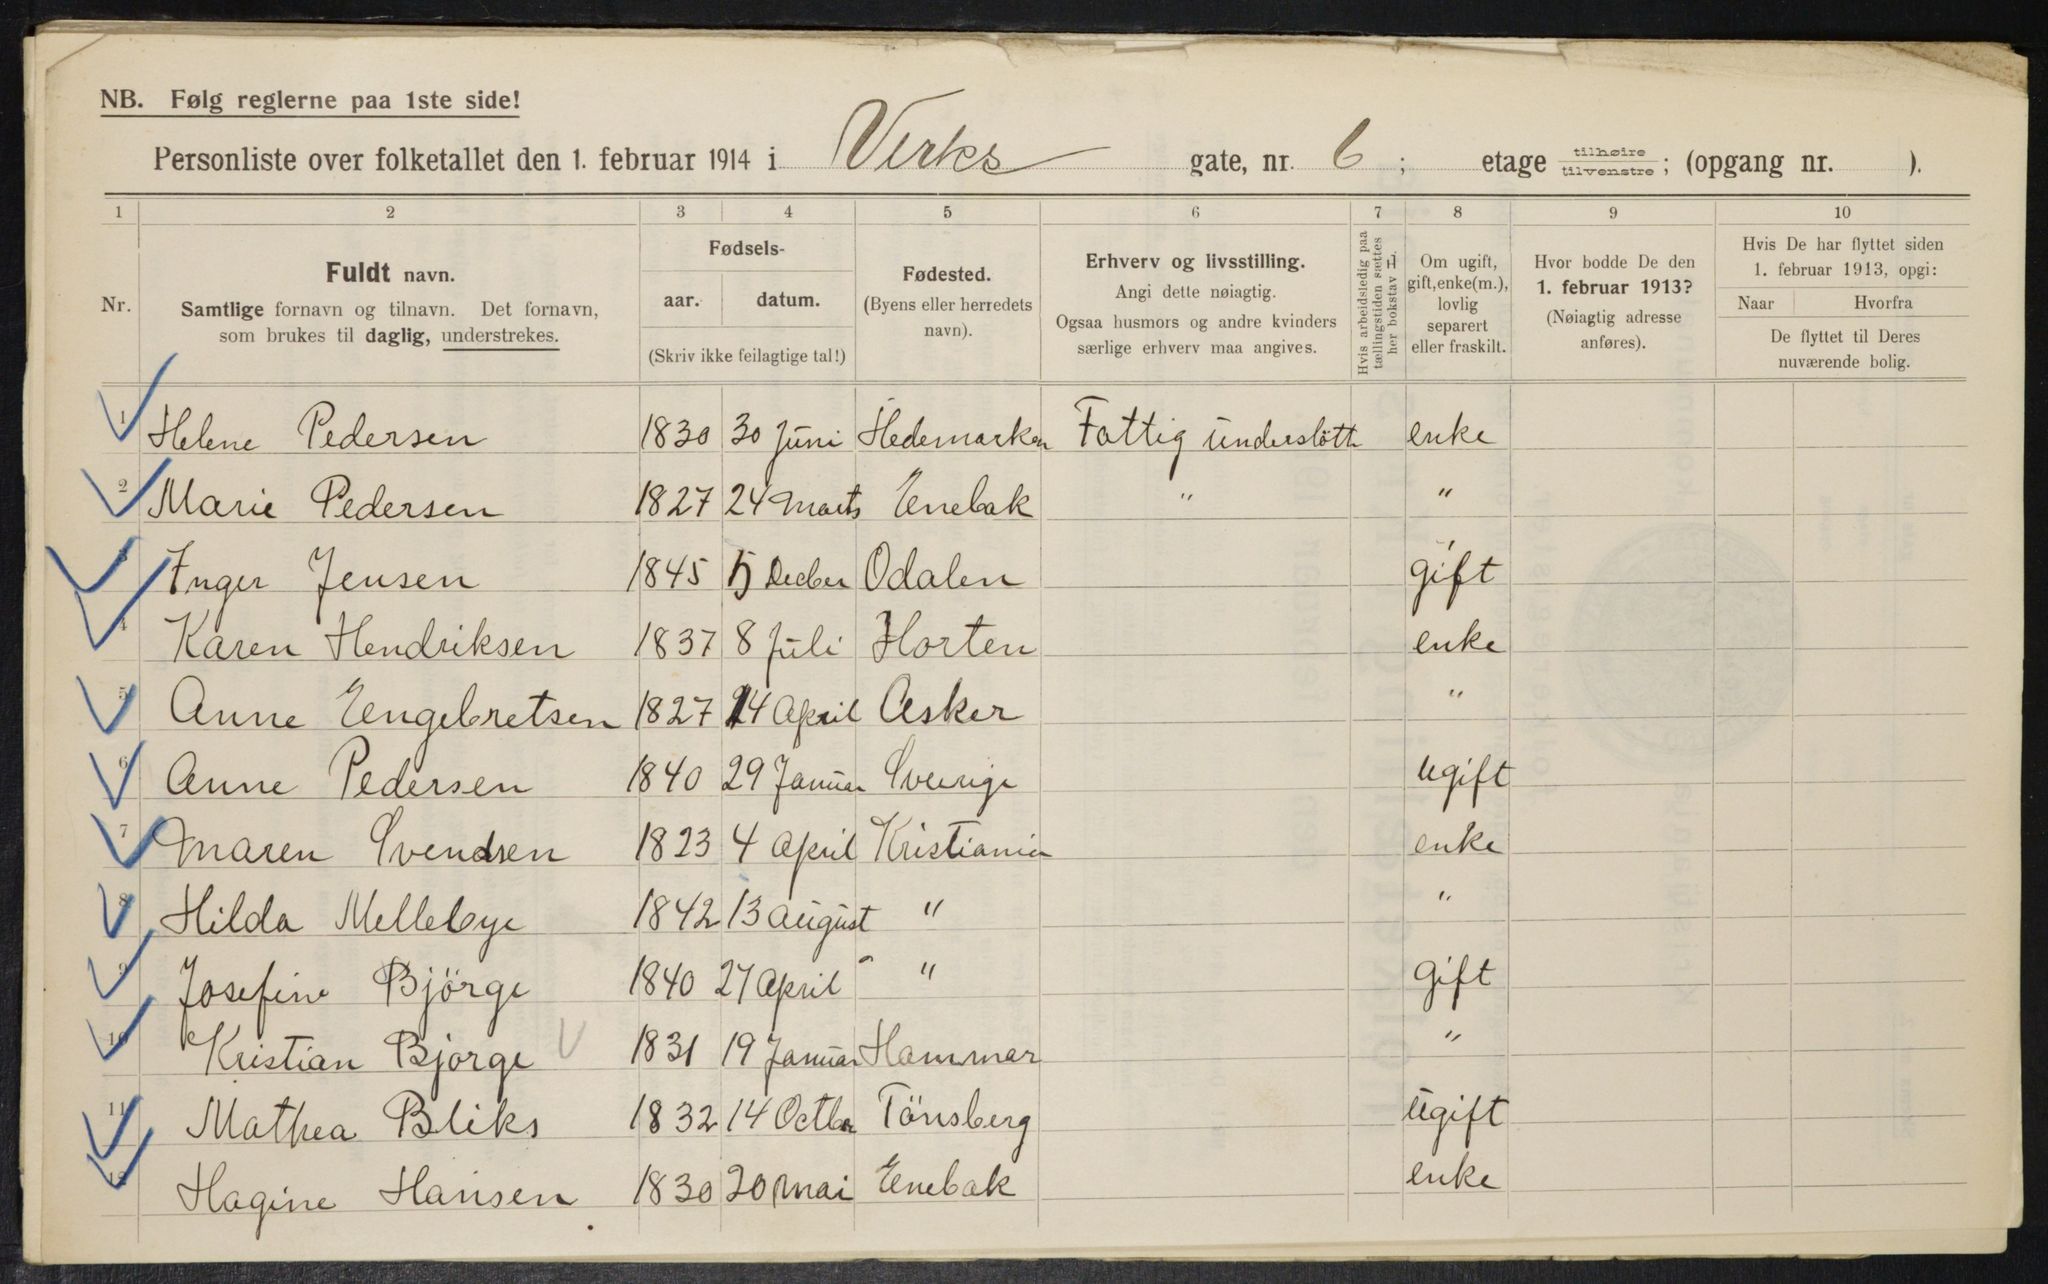 NB. Følg reglerne paa 1ste side!
Personliste over folketallet den 1. februar 1914 i Verks gate, nr. 6 ; etage tilhøire tilvenstre ; (opgang nr. ).
1 2 3 4 5 6 7 8 9 10
Nr.
Fuldt navn.
Samtlige fornavn og tilnavn. Det fornavn,
som brukes til daglig, understrekes.
Fødsels-
aar. datum.
(Skriv ikke feilagtige tal!)
Fødested.
(Byens eller herredets
navn).
Erhverv og livsstilling.
Angi dette nøiagtig.
Ogsaa husmors og andre kvinders
særlige erhverv maa angives.
Hvis arbeidsledig paa
tællingstiden sættes
her bokstav L.
Om ugift,
gift, enke(m.),
lovlig
separert
eller fraskilt.
Hvor bodde De den
1. februar 1913?
(Nøiagtig adresse
anføres).
Hvis De har flyttet siden
1. februar 1913, opgi:
Naar Hvorfra
De flyttet til Deres
nuværende bolig.
1 Helene Pedersen 1830 30 Juni Hedemarken Fattig understött enke
2 Marie Pedersen 1827 24 Marts Enebak " "
3 Inger Jensen 1845 5 Decber Odalen gift
4 Karen Hendriksen 1837 8 Juli Horten enke
5 Anne Engebretsen 1827 14 April Asker "
6 Anne Pedersen 1840 29 Januar Sverige ugift
7 Maren Svendsen 1823 4 April Kristiania enke
8 Hilda Mellebye 1842 13 August " "
9 Josefine Björge 1840 27 April " gift
10 Kristian Bjorge 1831 19 Januar Hammar "
11 Mathea Bliks 1832 14 Octbr Tönsberg ugift
12 Hagine Hansen 1830 20 Mai Enebak enke